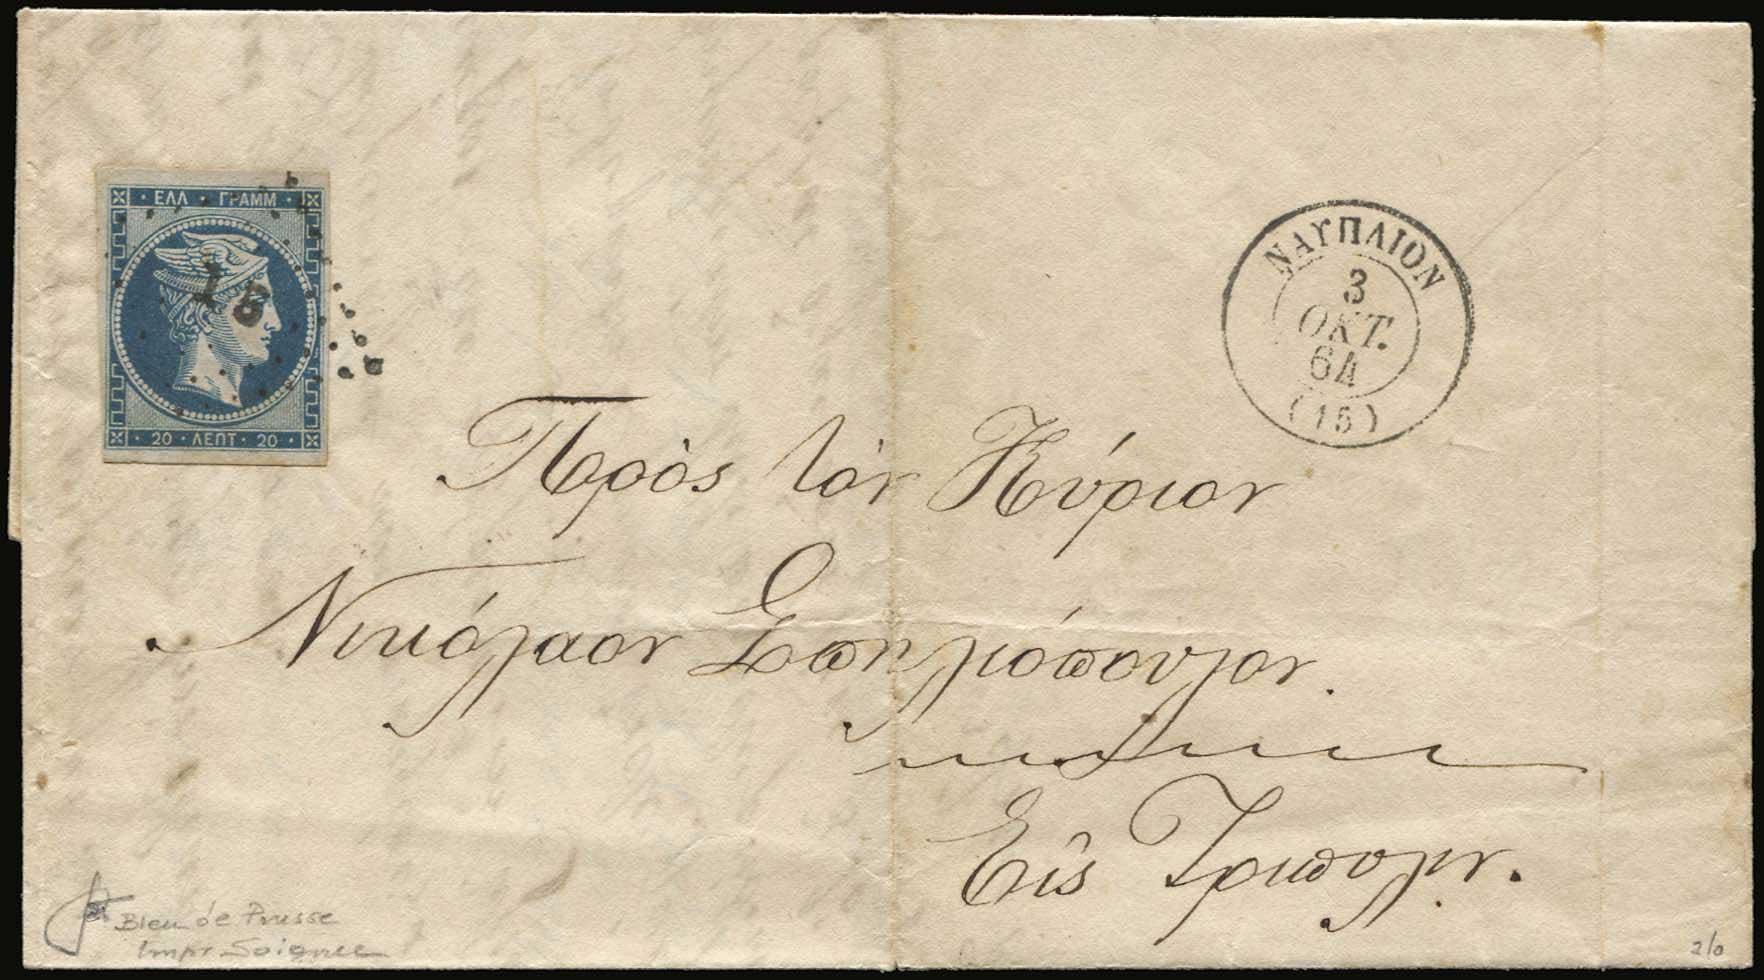 ΕΛΛ · ΓΡΑΜΜ
15
20 · ΛΕΠΤ · 20
ΝΑΥΠΛΙΟΝ
3
ΟΚΤ.
64
(15)
Πρὸς τὸν Κύριον
Νικόλαον Σπηλιόπουλον.
Εἰς Τρίπολιν.
Bleu de Prusse
Impr Soignée
2/0